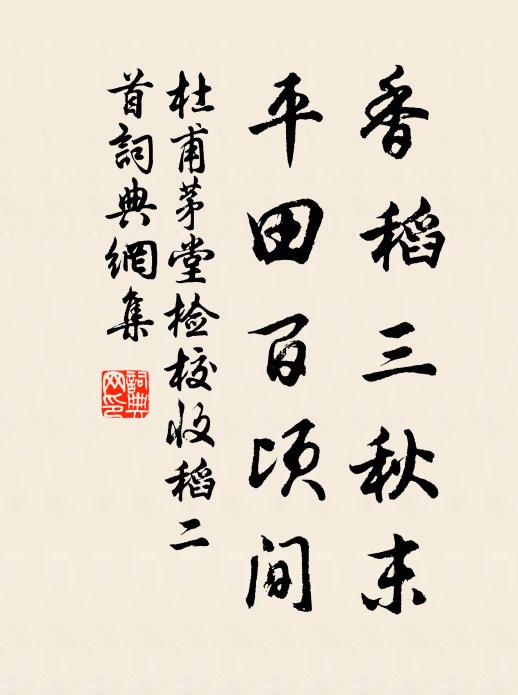 香稻三秋末
平田百顷间
杜甫茅堂检校收稻二
首詞典網集
詞典
网印